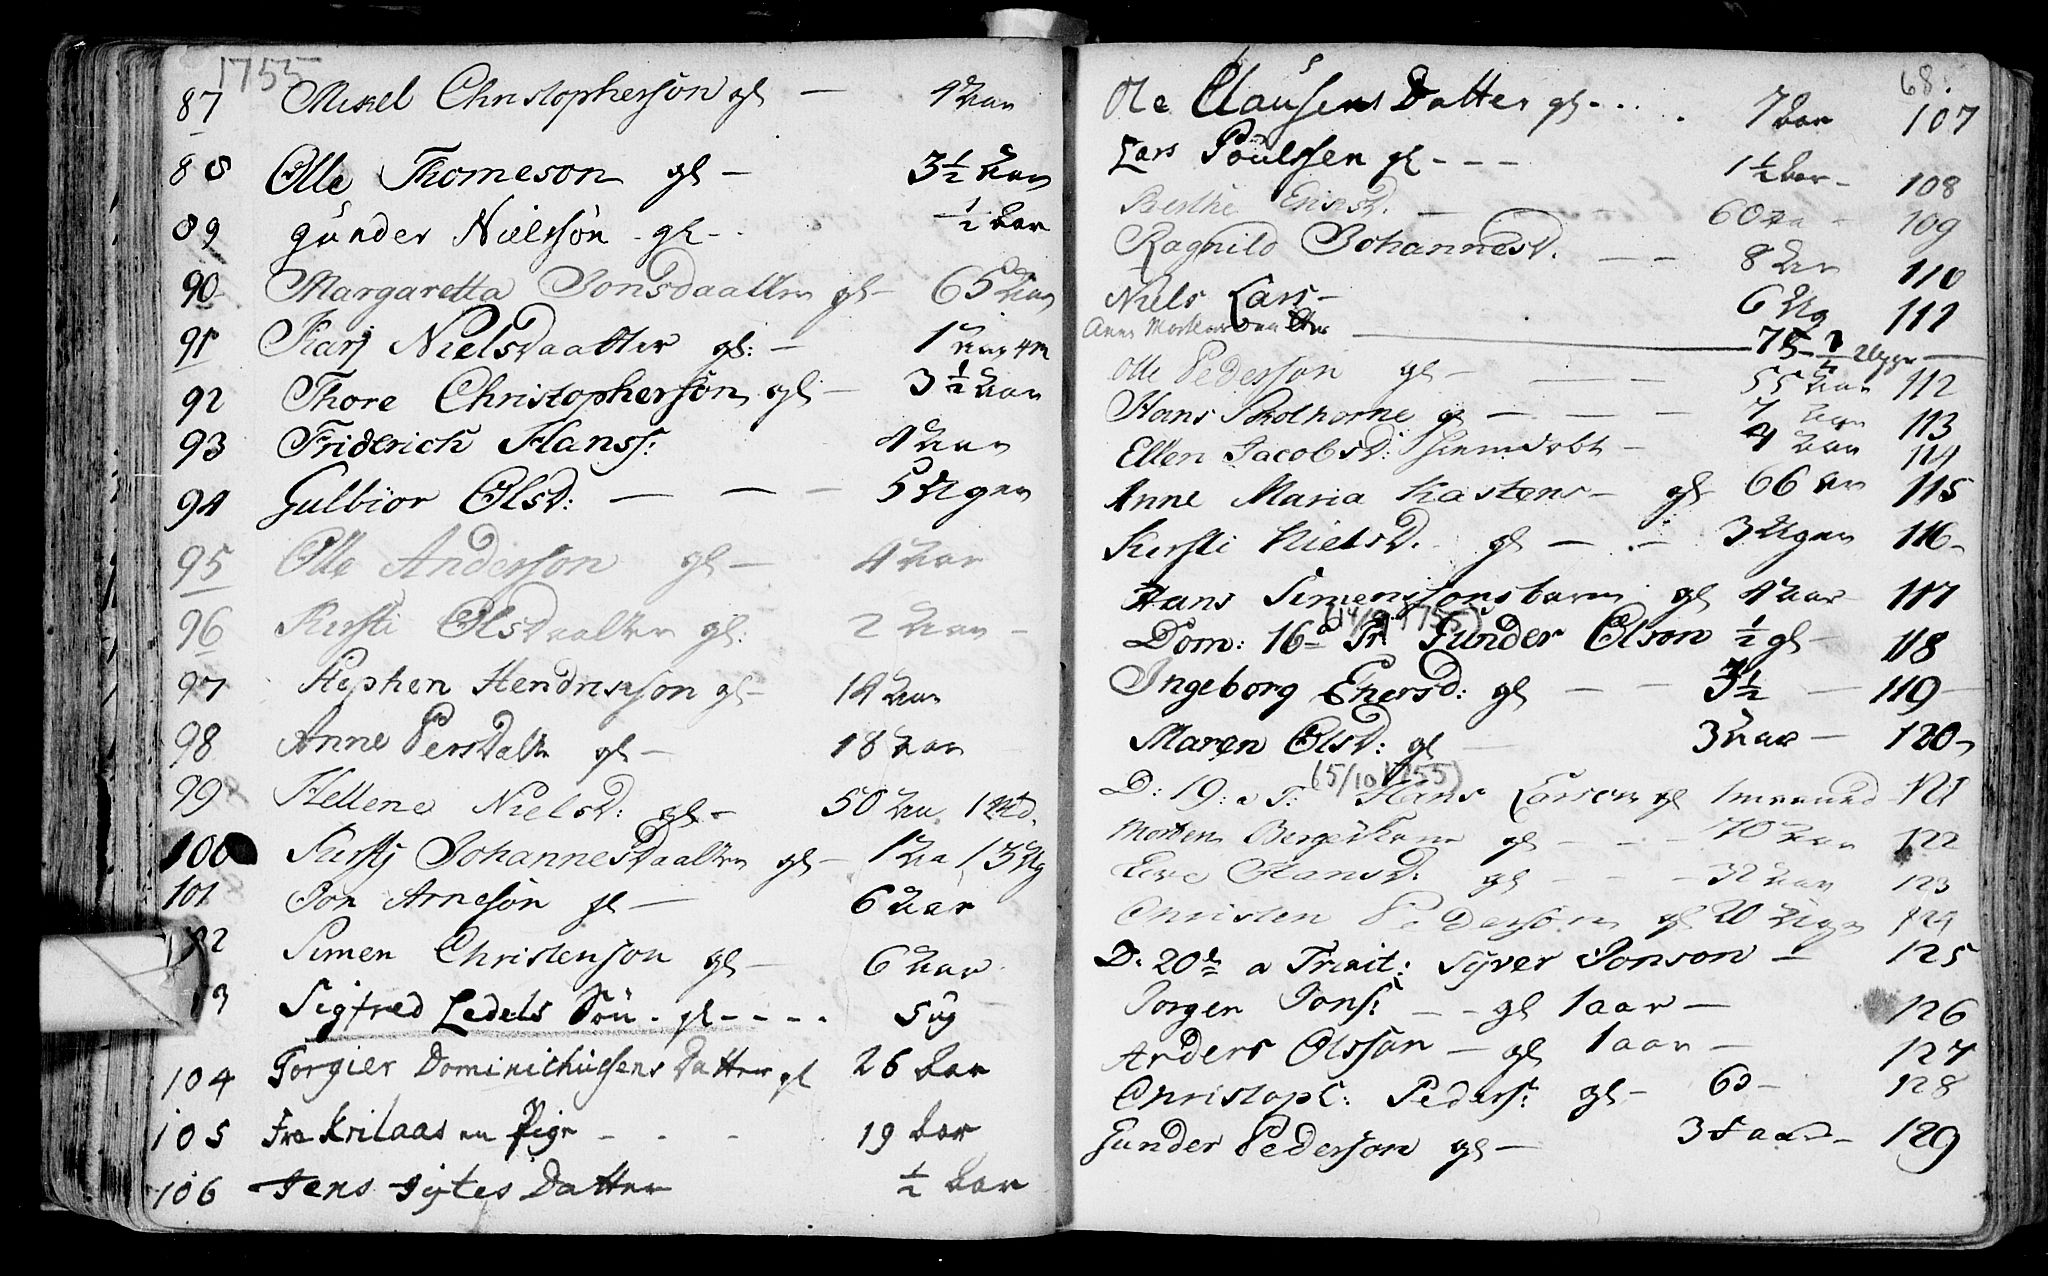 1755
87 Mikel Christopherson gl — 4 Aar
88 Olle Thomeson gl — 3½ Aar
89 gunder Nielsøn gl - . ½ Aar
90 Margaretta Jonsdaatter gl — 65 Aar
91 Karj Nielsdaatter gl: — 1 Aar 4 M
92 Thore Christopherson gl — 3½ Aar
93 Friderich Hanss: 4 Aar
94 Gulbior Olsd: — — — 5 Ugen
95 Olle Anderson gl — 4 Aar
96 Kersti Olsdaatter gl: 2 Aar —
97 Stephen Hendrikson gl — 14 Aar
98 Anne Persdatt gl — 18 Aar
99 Hellene Nielsd: gl — 50 Aa. 1 Md.
100 Kirstj Johannesdaatter gl — 1 Aa 13 Ug
101 Jon Arneson gl — 6 Aar
Simen Christenson gl — 6 Aar
Sigfred Ledels Søn . gl - - - - 5 ug
104 Torgier Dominichussens Datter gl 26 Aar
105 Fra Krilaas en Pige - . - 19 Aar
106 Jens Datter ½ Aar
68.
Ole Clausens Datter gl - . . . 7 Aar 107
Lars Poulssen gl - - - 1½ Aar — 108
Berthe — — 60 Aa — 109
Ragnild Johannesd. — — 8 Aar 110
Niels Lars — 6 Ug 111
Anne 75
Olle Pederson gl — — — 55 Aar 112
Hans gl — — — 7 Aar 113
Ellen Jacobsd: hiemdøbt — 4 Aar 114
Anne Maria Kastens — gl 66 Aar 115
Kersti Nielsd. gl — — 3 Ugen 116
Hans Simensons barn gl 4 Aar 117
(14/9 1755)
Dom: 16 a Tr. Gunder Olson ½ gl — 118
Ingeborg Enersd: gl — — 3½ — 119
Maren Olsd: gl — 3 Aar — 120
(5/10 1755)
D: 19: a T: Hans Larsen gl 1 maaned 121
Morten gl — - - 70 Aar 122
Eve Hansd: gl — - - 32 Aar 123
Christen Pederson gl 20 Ugr 124
D. 20de a Trinit: Syver Jonson — 125
Jorgen Jons: — - gl 1 aar — 126
Anders Olsson — gl 1 aar — 127
Christoph: Peders: gl — 60 — 128
Gunder Pederson gl — 129